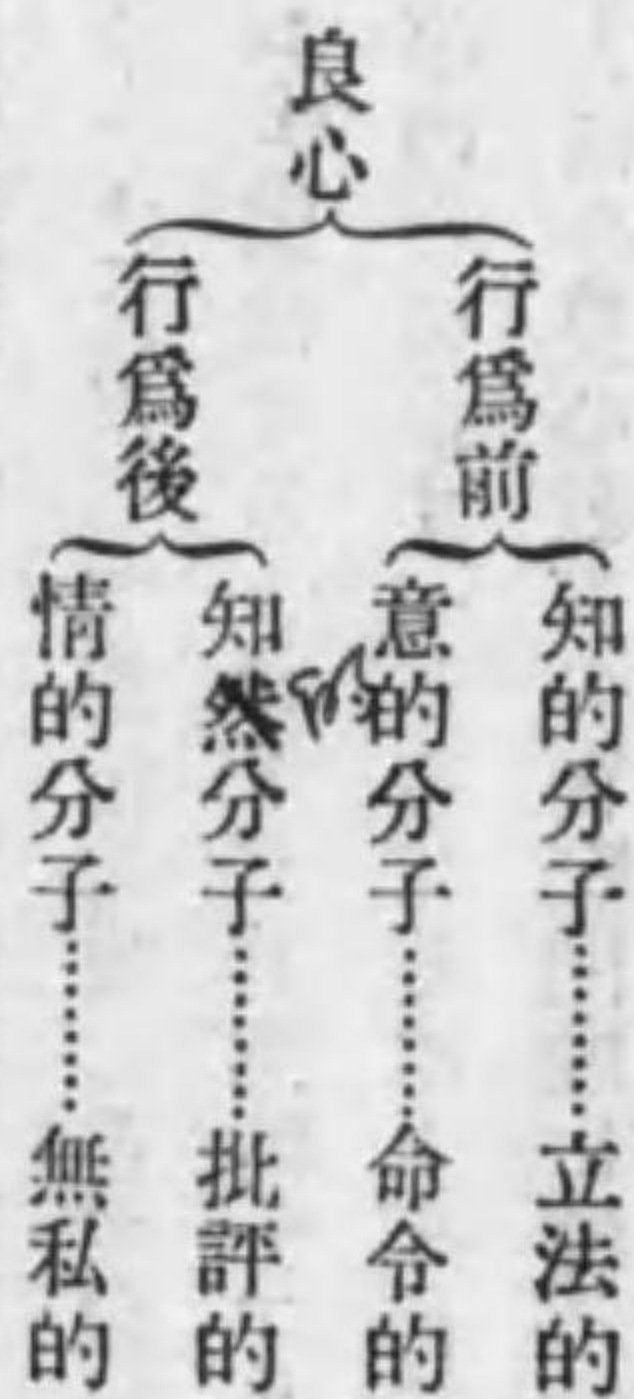 良心
行爲前
知的分子………立法的
意的分子………命令的
行爲後
知然分子………批評的
的
情的分子………無私的